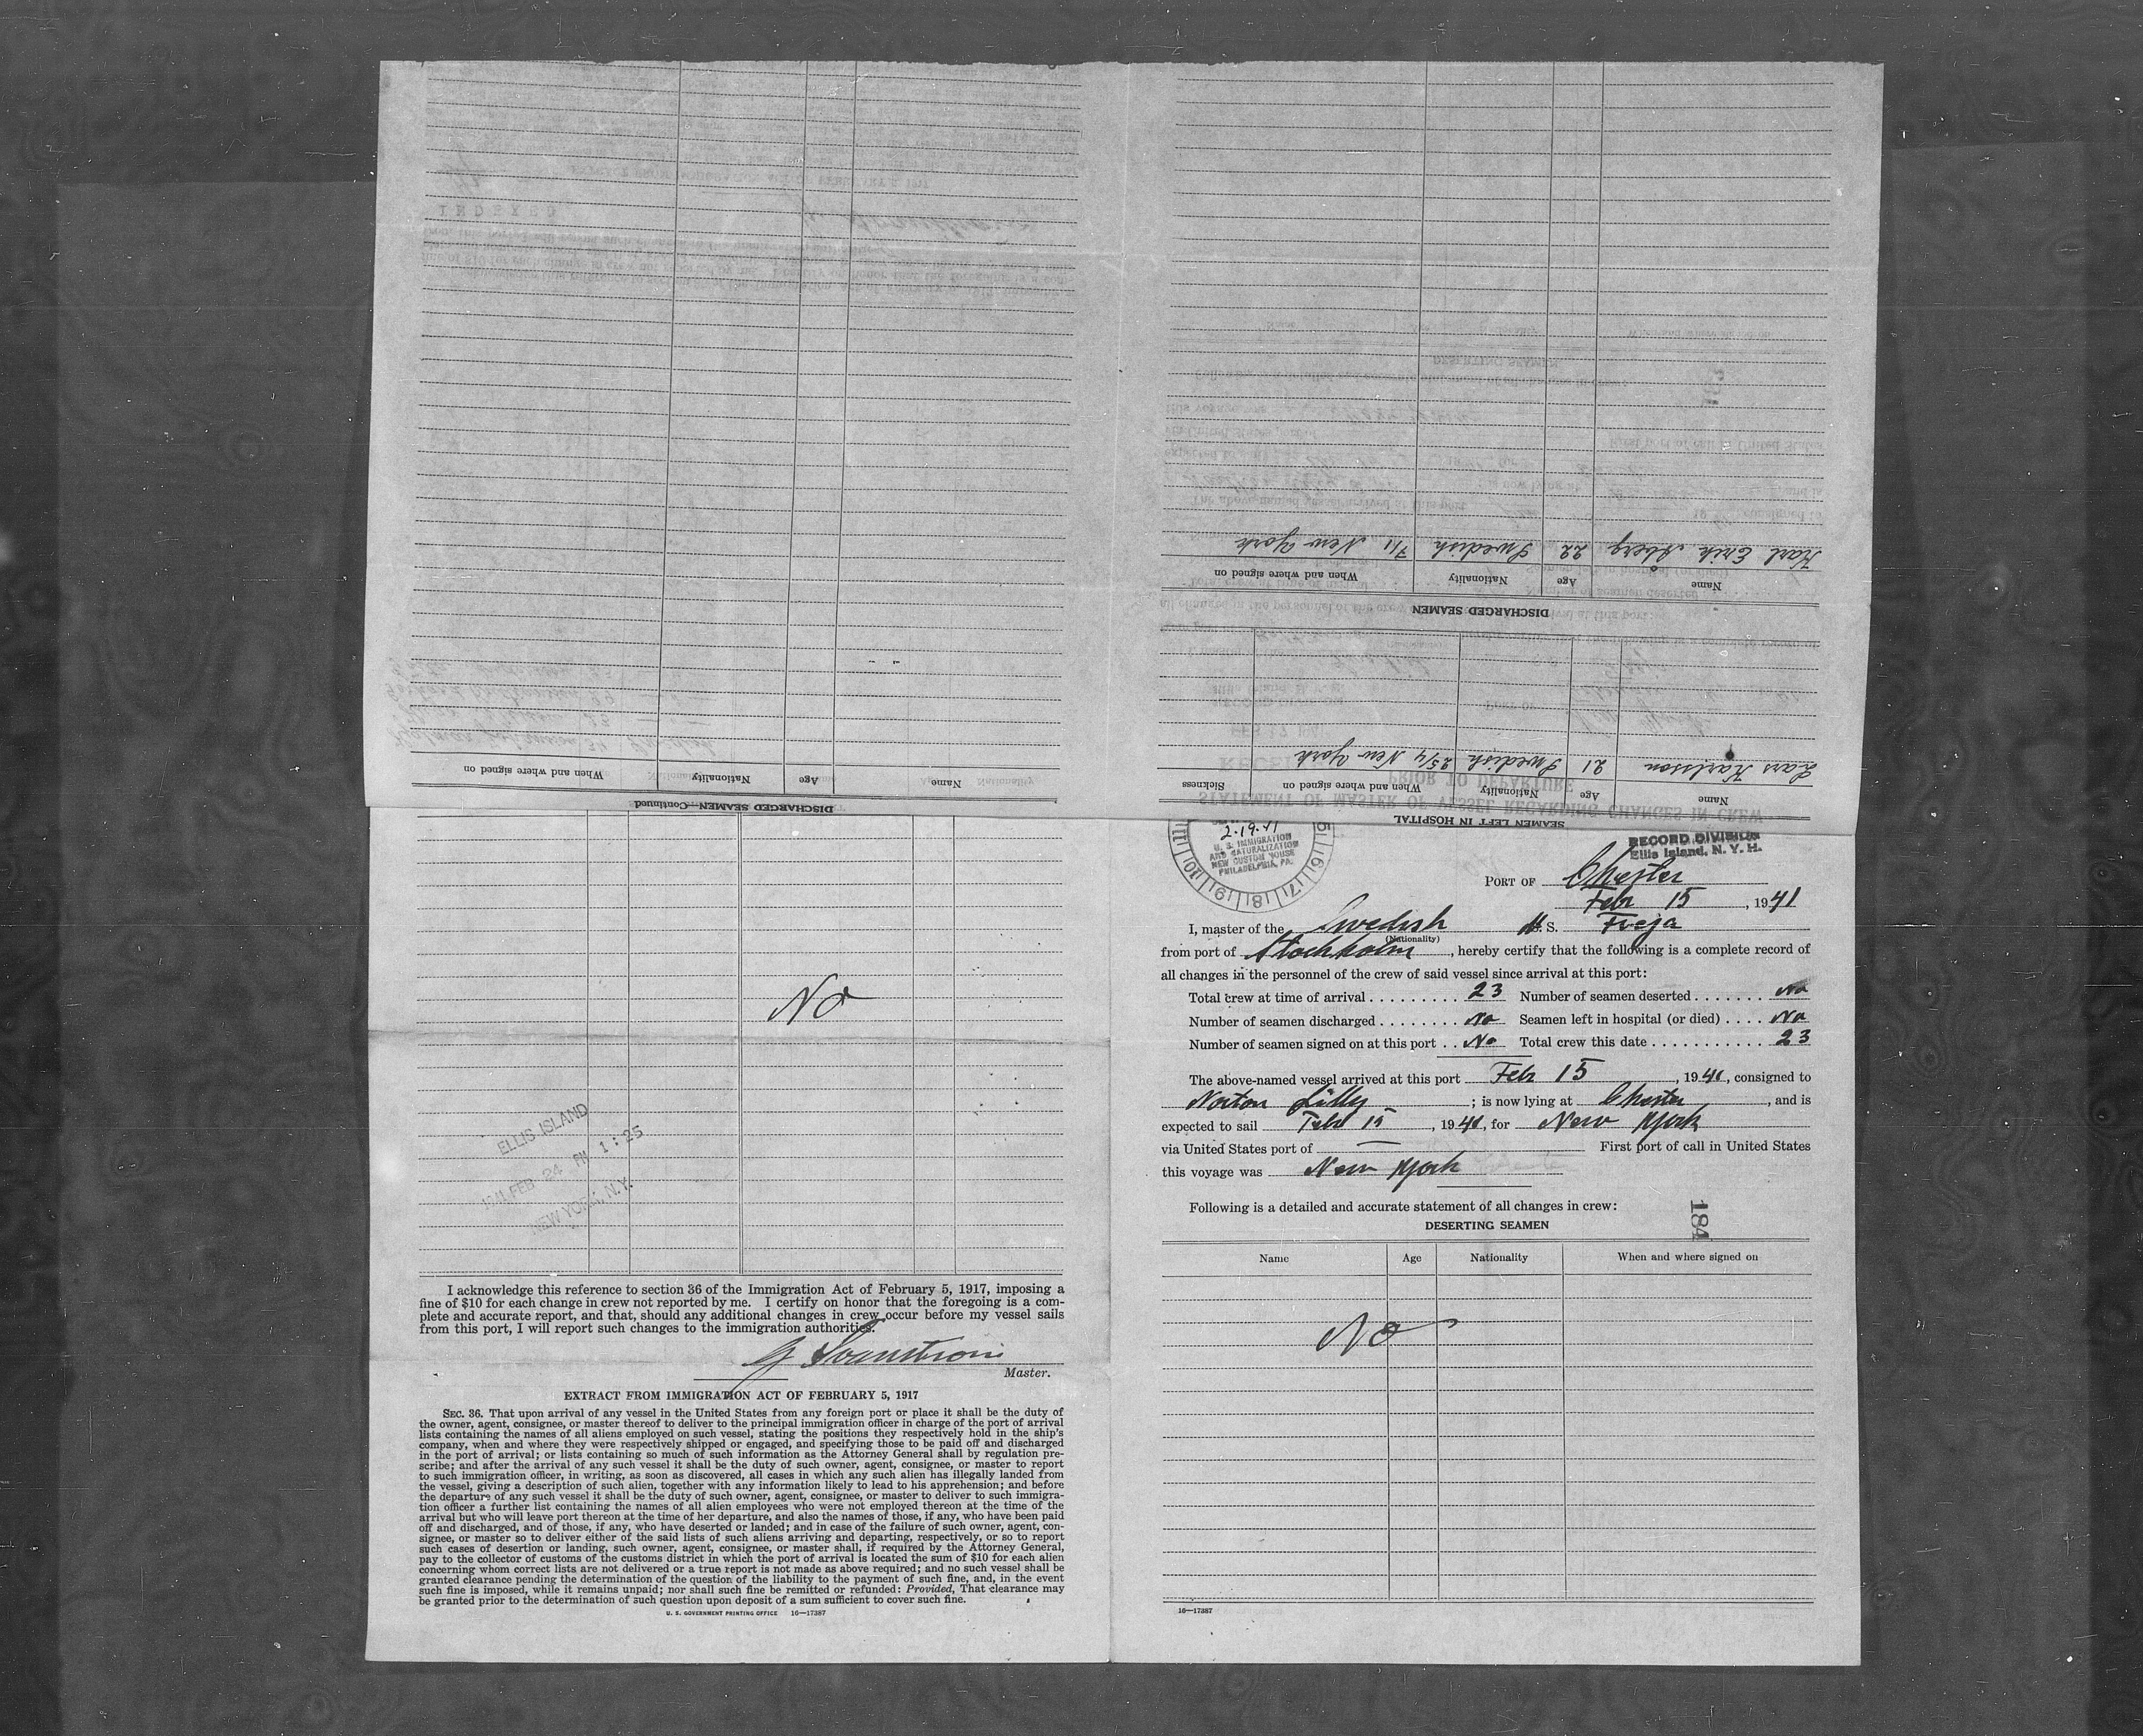 SEAMEN LEFT IN HOSPITAL
Name Age Nationality When and where signed on Sickness
Lars Karlsson 21 Swedish 25/4 New York
DISCHARGED SEAMEN
Name Age Nationality When and where signed on
Karl Erik Åberg 22 Swedish 7/11 New York
DISCHARGED SEAMEN—Continued
Name Age Nationality When and where signed on
2-19-41
U. S. IMMIGRATION
AND NATURALIZATION
NEW CUSTOM HOUSE
PHILADELPHIA, PA.
RECORD DIVISION
Ellis Island, N. Y. H.
PORT OF Chester
Febr 15, 1941
I, master of the Swedish M. S. Freja
(Nationality)
from port of Stockholm, hereby certify that the following is a complete record of
all changes in the personnel of the crew of said vessel since arrival at this port:
Total crew at time of arrival . . . . . . . . . . 23 Number of seamen deserted . . . . . . . No
Number of seamen discharged . . . . . . . . No Seamen left in hospital (or died) . . . . No
Number of seamen signed on at this port . . No Total crew this date . . . . . . . . . . . . 23
The above-named vessel arrived at this port Febr 15, 1941, consigned to
Norton Lilly; is now lying at Chester, and is
expected to sail Febr 15, 1941, for New York
via United States port of — First port of call in United States
this voyage was New York
Following is a detailed and accurate statement of all changes in crew:
184
DESERTING SEAMEN
Name Age Nationality When and where signed on
No
16—17387
No
ELLIS ISLAND
1941 FEB 24 PM 1:25
NEW YORK, N.Y.
I acknowledge this reference to section 36 of the Immigration Act of February 5, 1917, imposing a
fine of $10 for each change in crew not reported by me. I certify on honor that the foregoing is a com-
plete and accurate report, and that, should any additional changes in crew occur before my vessel sails
from this port, I will report such changes to the immigration authorities.
G Svanström
Master.
EXTRACT FROM IMMIGRATION ACT OF FEBRUARY 5, 1917
SEC. 36. That upon arrival of any vessel in the United States from any foreign port or place it shall be the duty of
the owner, agent, consignee, or master thereof to deliver to the principal immigration officer in charge of the port of arrival
lists containing the names of all aliens employed on such vessel, stating the positions they respectively hold in the ship's
company, when and where they were respectively shipped or engaged, and specifying those to be paid off and discharged
in the port of arrival; or lists containing so much of such information as the Attorney General shall by regulation pre-
scribe; and after the arrival of any such vessel it shall be the duty of such owner, agent, consignee, or master to report
to such immigration officer, in writing, as soon as discovered, all cases in which any such alien has illegally landed from
the vessel, giving a description of such alien, together with any information likely to lead to his apprehension; and before
the departure of any such vessel it shall be the duty of such owner, agent, consignee, or master to deliver to such immigra-
tion officer a further list containing the names of all alien employees who were not employed thereon at the time of the
arrival but who will leave port thereon at the time of her departure, and also the names of those, if any, who have been paid
off and discharged, and of those, if any, who have deserted or landed; and in case of the failure of such owner, agent, con-
signee, or master so to deliver either of the said lists of such aliens arriving and departing, respectively, or so to report
such cases of desertion or landing, such owner, agent, consignee, or master shall, if required by the Attorney General,
pay to the collector of customs of the customs district in which the port of arrival is located the sum of $10 for each alien
concerning whom correct lists are not delivered or a true report is not made as above required; and no such vessel shall be
granted clearance pending the determination of the question of the liability to the payment of such fine, and, in the event
such fine is imposed, while it remains unpaid; nor shall such fine be remitted or refunded: Provided, That clearance may
be granted prior to the determination of such question upon deposit of a sum sufficient to cover such fine.
U. S. GOVERNMENT PRINTING OFFICE 16—17387